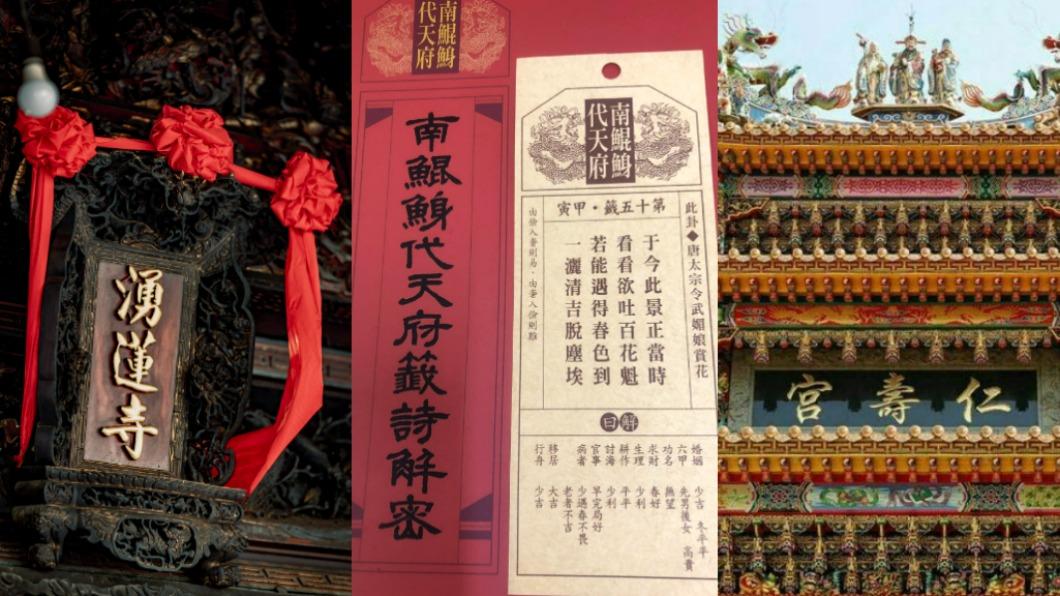 湧蓮寺
南鯤鯓
代天府
南鯤鯓代天府籤詩解密
南鯤鯓
代天府
此卦◆唐太宗令武媚娘賞花
第十五籤・甲寅
于今此景正當時
看看欲吐百花魁
若能遇得春色到
一灑清吉脫塵埃
由儉入奢則易・由奢入儉則難
解曰
婚姻 少吉 冬平平
六甲 先男後女 高貴
功名 望
求財 春好
生理 少利
耕作 平平
討海 少利
官事 早完局好
病者 少遇春不畏
老者不吉
移居 大吉
行舟 少吉
仁壽宮